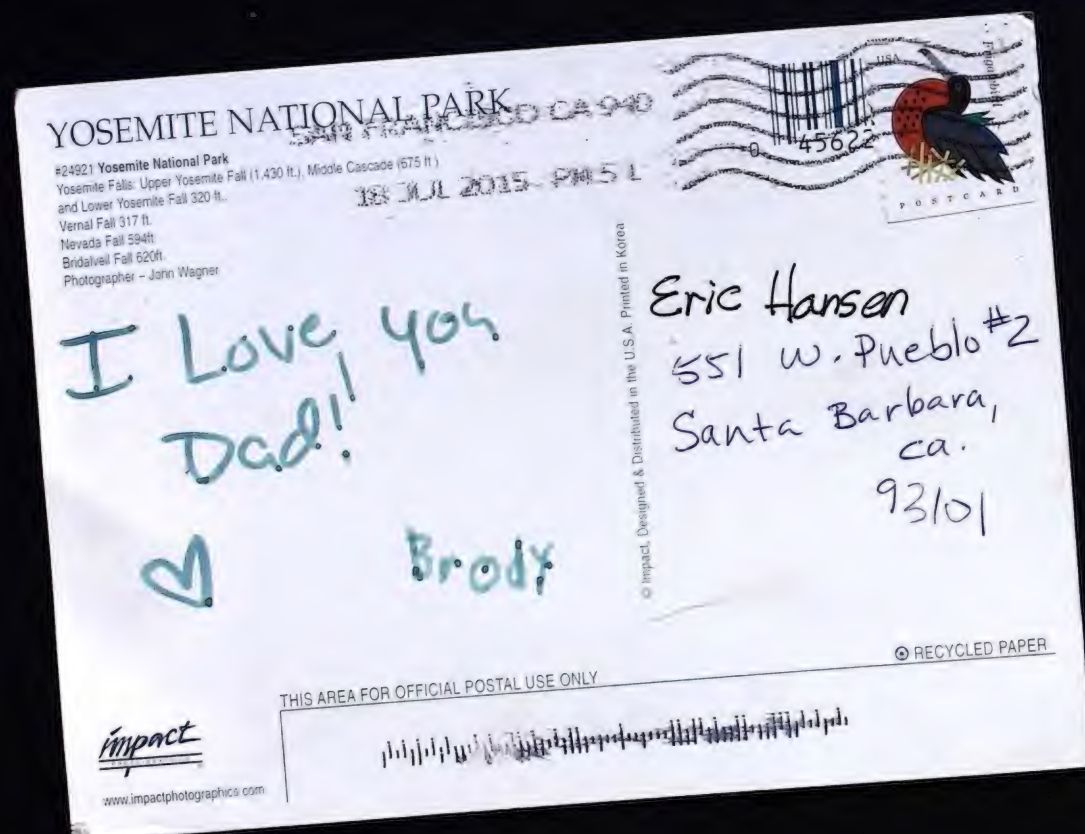 YOSEMITE NATIONAL PARK
SAN FRANCISCO CA 940
18 JUL 2015 PM 5 L
#24921 Yosemite National Park
Yosemite Falls: Upper Yosemite Fall (1,430 ft.), Middle Cascade (675 ft.)
and Lower Yosemite Fall 320 ft.
Vernal Fall 317 ft.
Nevada Fall 594ft
Bridalveil Fall 620ft.
Photographer – John Wagner
USA
0 45622
POSTCARD
I Love, you
Dad!
Brody
© Impact, Designed & Distributed in the U.S.A. Printed in Korea
Eric Hansen
551 W. Pueblo #2
Santa Barbara,
ca.
93101
RECYCLED PAPER
THIS AREA FOR OFFICIAL POSTAL USE ONLY
impact
www.impactphotographics.com